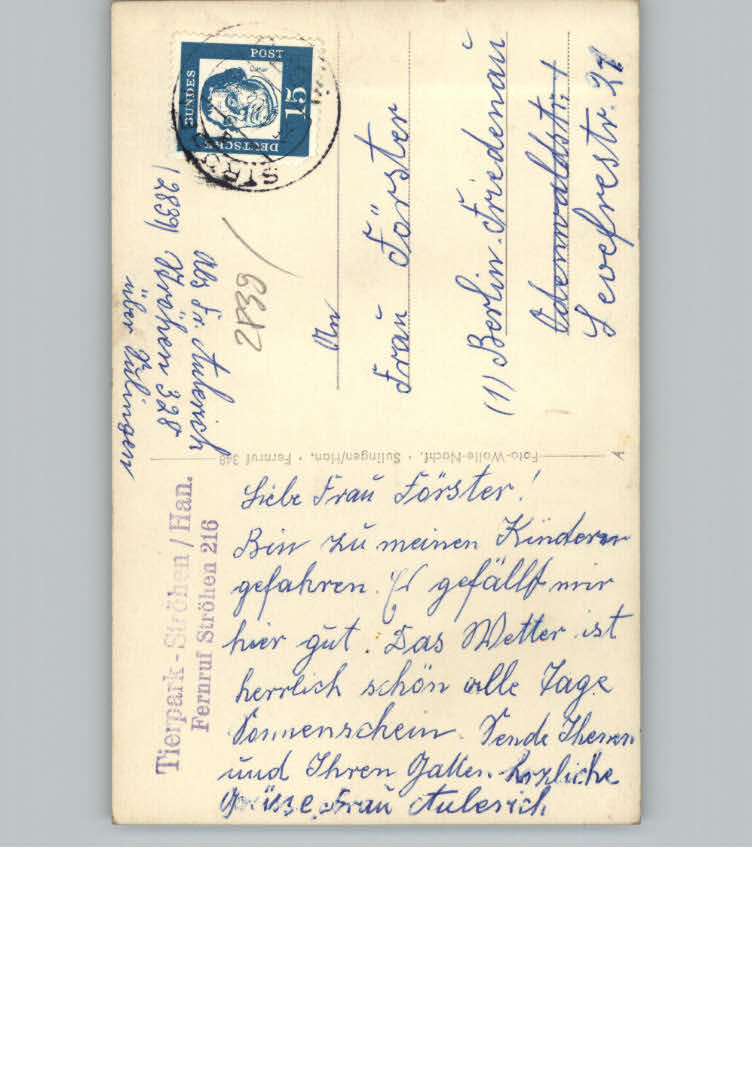 DEUTSCHE
BUNDES
POST
15
Abs. Fr. Aulerich
(2839) Ströhen 328
über Sulingen
2839
An
Frau Förster
(1) Berlin-Friedenau
Odenwaldstr. +
Foto-Wolle-Nachf. · Sulingen/Han. · Fernruf 348
Tierpark-Ströhen/Han.
Fernruf Ströhen 216
Liebe Frau Förster!
Bin zu meinen Kindern
gefahren. Es gefällt mir
hier gut. Das Wetter ist
herrlich schön alle Tage
Sonnenschein. Sende Ihnen
und Ihren Gatten herzliche
Grüsse Frau Aulerich